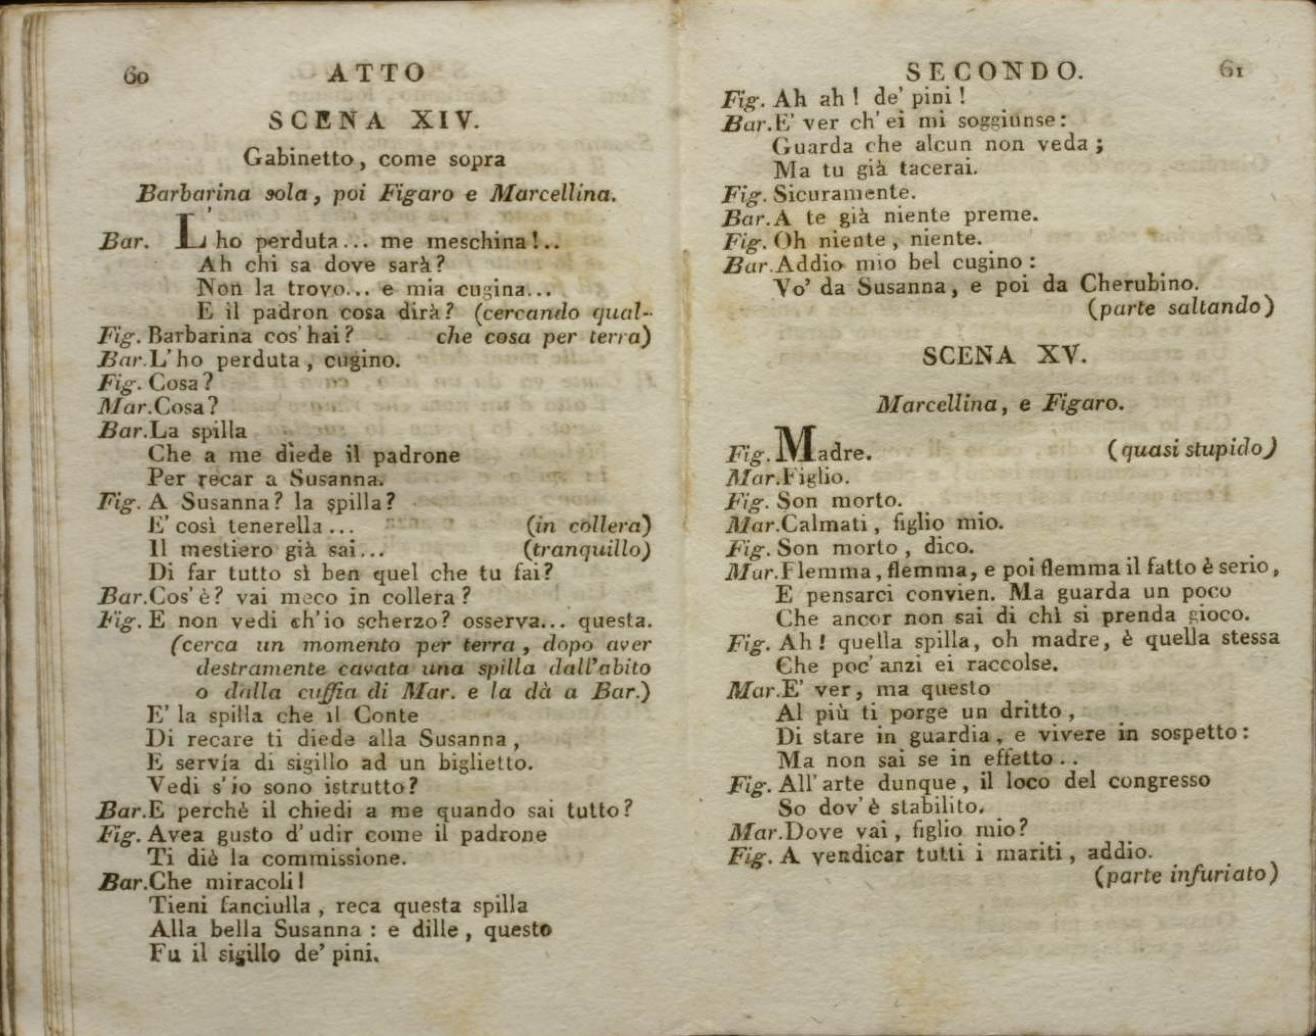 60
ATTO
SCENA XIV.
Gabinetto, come sopra
Barbarina sola, poi Figaro e Marcellina.
Bar. L'ho perduta... me meschina!..
Ah chi sa dove sarà?
Non la trovo... e mia cugina...
E il padron cosa dirà? (cercando qual-
Fig. Barbarina cos'hai? che cosa per terra)
Bar. L'ho perduta, cugino.
Fig. Cosa?
Mar. Cosa?
Bar. La spilla
Che a me diede il padrone
Per recar a Susanna.
Fig. A Susanna? la spilla?
E' così tenerella... (in collera)
Il mestiero già sai... (tranquillo)
Di far tutto sì ben quel che tu fai?
Bar. Cos'è? vai meco in collera?
Fig. E non vedi ch'io scherzo? osserva... questa.
(cerca un momento per terra, dopo aver
destramente cavata una spilla dall'abito
o dalla cuffia di Mar. e la dà a Bar.)
E' la spilla che il Conte
Di recare ti diede alla Susanna,
E servía di sigillo ad un biglietto.
Vedi s'io sono istrutto?
Bar. E perchè il chiedi a me quando sai tutto?
Fig. Avea gusto d'udir come il padrone
Ti diè la commissione.
Bar. Che miracoli!
Tieni fanciulla, reca questa spilla
Alla bella Susanna: e dille, questo
Fu il sigillo de' pini.
SECONDO.
61
Fig. Ah ah! de' pini!
Bar. E' ver ch'ei mi soggiunse:
Guarda che alcun non veda;
Ma tu già tacerai.
Fig. Sicuramente.
Bar. A te già niente preme.
Fig. Oh niente, niente.
Bar. Addio mio bel cugino:
Vo' da Susanna, e poi da Cherubino.
(parte saltando)
SCENA XV.
Marcellina, e Figaro.
Fig. Madre. (quasi stupido)
Mar. Figlio.
Fig. Son morto.
Mar. Calmati, figlio mio.
Fig. Son morto, dico.
Mar. Flemma, flemma, e poi flemma il fatto è serio,
E pensarci convien. Ma guarda un poco
Che ancor non sai di chì si prenda gioco.
Fig. Ah! quella spilla, oh madre, è quella stessa
Che poc'anzi ei raccolse.
Mar. E' ver, ma questo
Al più ti porge un dritto,
Di stare in guardia, e vivere in sospetto:
Ma non sai se in effetto..
Fig. All'arte dunque, il loco del congresso
So dov'è stabilito.
Mar. Dove vai, figlio mio?
Fig. A vendicar tutti i mariti, addio.
(parte infuriato)